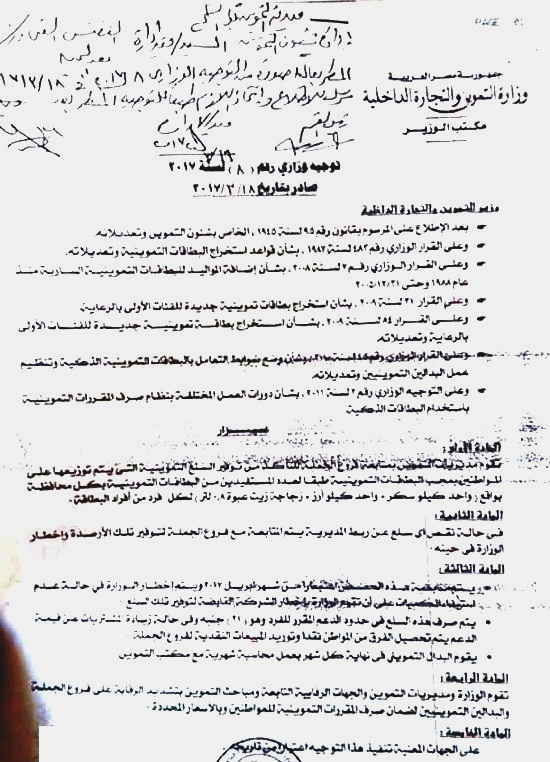 مديرية التموين
السيد / مدير إدارة
جمهورية مصر العربية
وزارة التموين والتجارة الداخلية
مكتب الوزير
توجيه وزاري رقم (٨) لسنة ٢٠١٧
صادر بتاريخ ٢٠١٧/٣/١٨
وزير التموين والتجارة الداخلية
بعد الإطلاع على المرسوم بقانون رقم ٩٥ لسنة ١٩٤٥ ، الخاص بشئون التموين وتعديلاته.
وعلى القرار الوزاري رقم ٤٨٢ لسنة ١٩٨٢ ، بشأن قواعد استخراج البطاقات التموينية وتعديلاته.
وعلى القرار الوزاري رقم ٢ لسنة ٢٠٠٨ ، بشأن إضافة المواليد للبطاقات التموينية السارية منذ
عام ١٩٨٨ وحتى ٢٠٠٥/١٢/٣١
وعلى القرار ٢١ لسنة ٢٠٠٩ ، بشأن استخراج بطاقات تموينية جديدة للفئات الأولى بالرعاية.
وعلى القرار ٨٤ لسنة ٢٠٠٩ ، بشأن استخراج بطاقة تموينية جديدة للفئات الأولى
بالرعاية وتعديلاته.
وعلى القرار الوزاري رقم لسنة بشأن وضع ضوابط التعامل بالبطاقات التموينية الذكية وتنظيم
عمل البدالين التموينيين وتعديلاته.
وعلى التوجيه الوزاري رقم ٢ لسنة ٢٠١١ ، بشأن دورات العمل المختلفة بنظام صرف المقررات التموينية
باستخدام البطاقات الذكية
قرار
المادة الأولى :
تقوم مديريات التموين بمتابعة فروع الجملة للتأكد من توفير السلع التموينية التي يتم توزيعها على
المواطنين بموجب البطاقات التموينية طبقا لعدد المستفيدين من البطاقات التموينية بكل محافظة
بواقع ( واحد كيلو سكر - واحد كيلو أرز - زجاجة زيت عبوة ٠.٨ لتر ) لكل فرد من أفراد البطاقة .
المادة الثانية :
في حالة نقص أي سلع عن ربط المديرية يتم المتابعة مع فروع الجملة لتوفير تلك الأرصدة وإخطار
الوزارة في حينه .
المادة الثالثة :
يتم متابعة هذه الحصص اعتبارا من شهر ابريل ٢٠١٧ ويتم إخطار الوزارة في حالة عدم
استيفاء الكميات على أن تقوم الوزارة بإخطار الشركة القابضة لتوفير تلك السلع
يتم صرف هذه السلع في حدود الدعم المقرر للفرد وهو (٢١) جنيه وفي حالة زيادة المشتريات عن قيمة
الدعم يتم تحصيل الفرق من المواطن نقدا وتوريد المبيعات النقدية لفروع الجملة
يقوم البدال التمويني في نهاية كل شهر بعمل محاسبة شهرية مع مكتب التموين
المادة الرابعة :
تقوم الوزارة ومديريات التموين والجهات الرقابية التابعة ومباحث التموين بتشديد الرقابة على فروع الجملة
والبدالين التموينيين لضمان صرف المقررات التموينية للمواطنين وبالأسعار المحددة .
المادة الخامسة :
على الجهات المعنية تنفيذ هذا التوجيه اعتبارا من تاريخه .